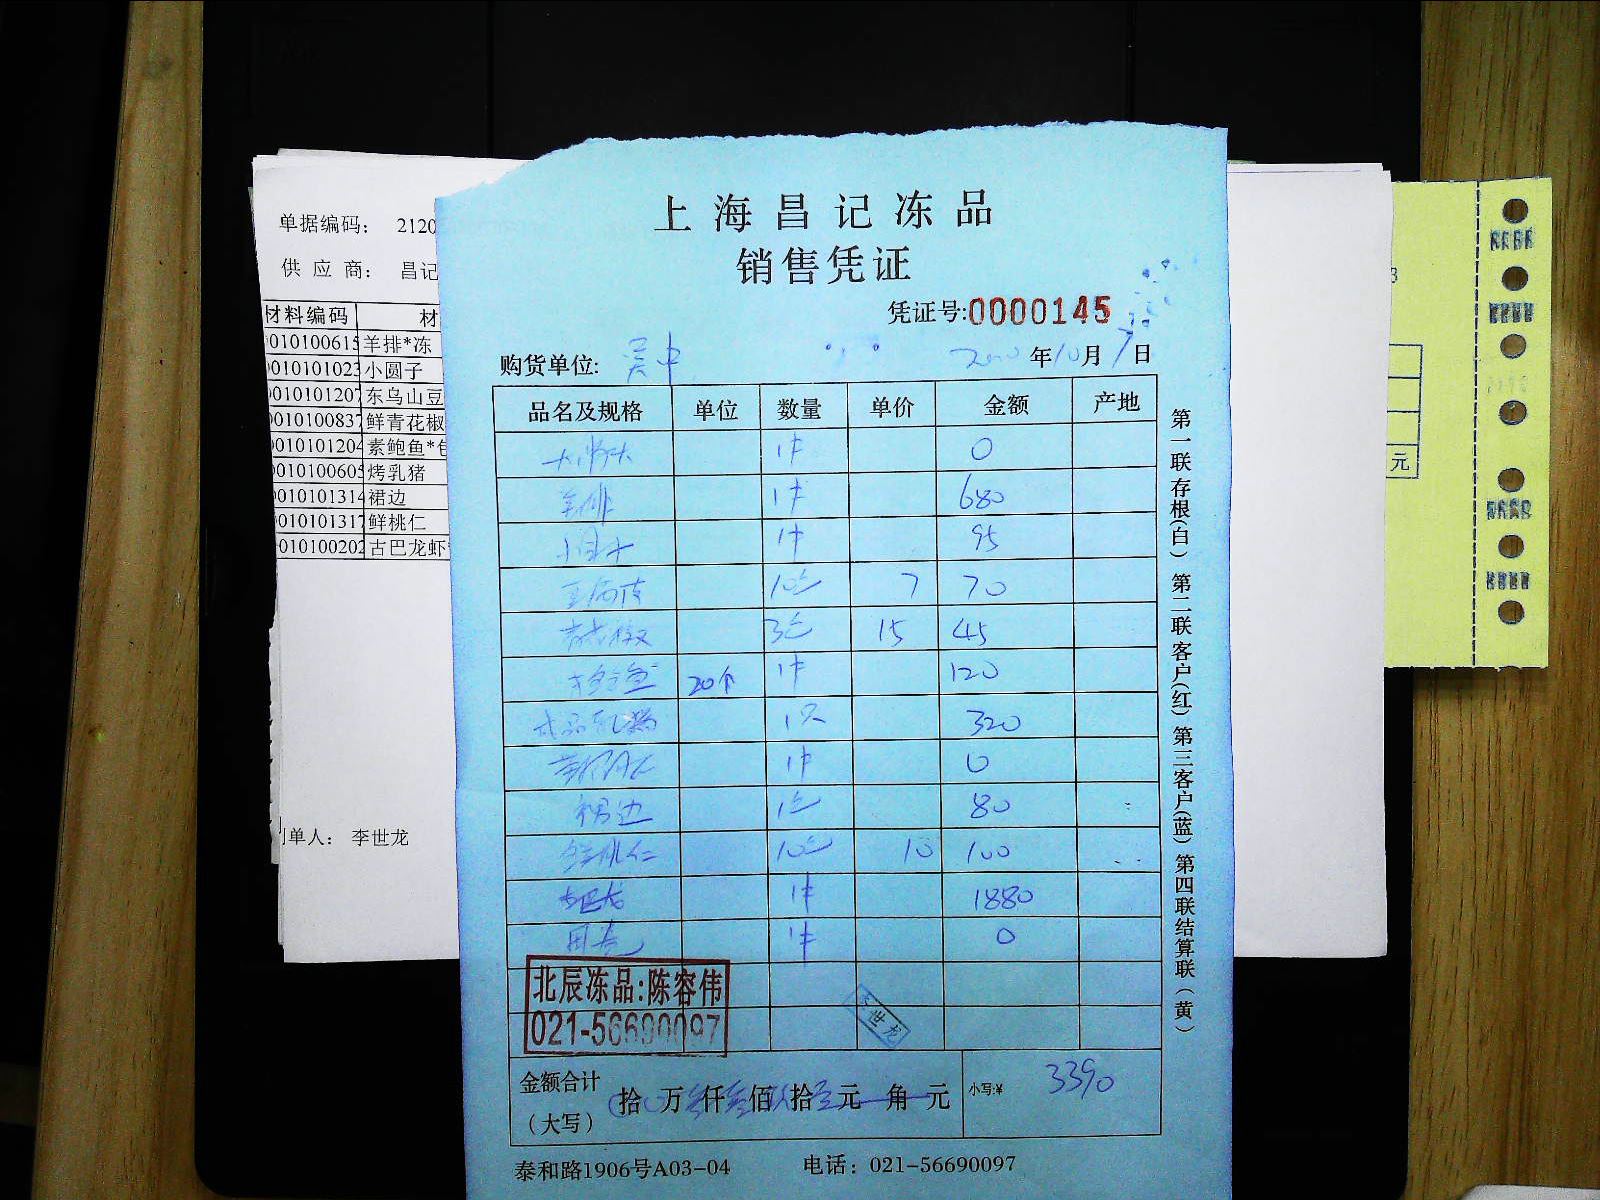 单据编码： 2120
供 应 商： 昌记
材料编码 材
010100615 羊排*冻
010101023 小圆子
010101207 东乌山豆
010100837 鲜青花椒
010101204 素鲍鱼*包
010100605 烤乳猪
010101314 裙边
010101317 鲜桃仁
010100202 古巴龙虾
单人： 李世龙
上海昌记冻品
销售凭证
凭证号:0000145
购货单位: 吴中 年10月 日
品名及规格 单位 数量 单价 金额 产地
1件 0
羊排 1件 680
小圆子 1件 95
豆腐皮 10包 7 70
青花椒 3包 15 45
鲍鱼 20个 1件 120
成品乳猪 1只 320
1件 0
裙边 1包 80
鲜桃仁 10包 10 100
古巴龙 1件 1880
1件 0
北辰冻品:陈容伟
021-56690097
世龙
金额合计
（大写） 拾 万 仟 叁 佰 拾 元 角 元 小写:¥ 3390
泰和路1906号A03-04 电话：021-56690097
第一联存根(白) 第二联客户(红) 第三客户(蓝) 第四联结算联(黄)
元